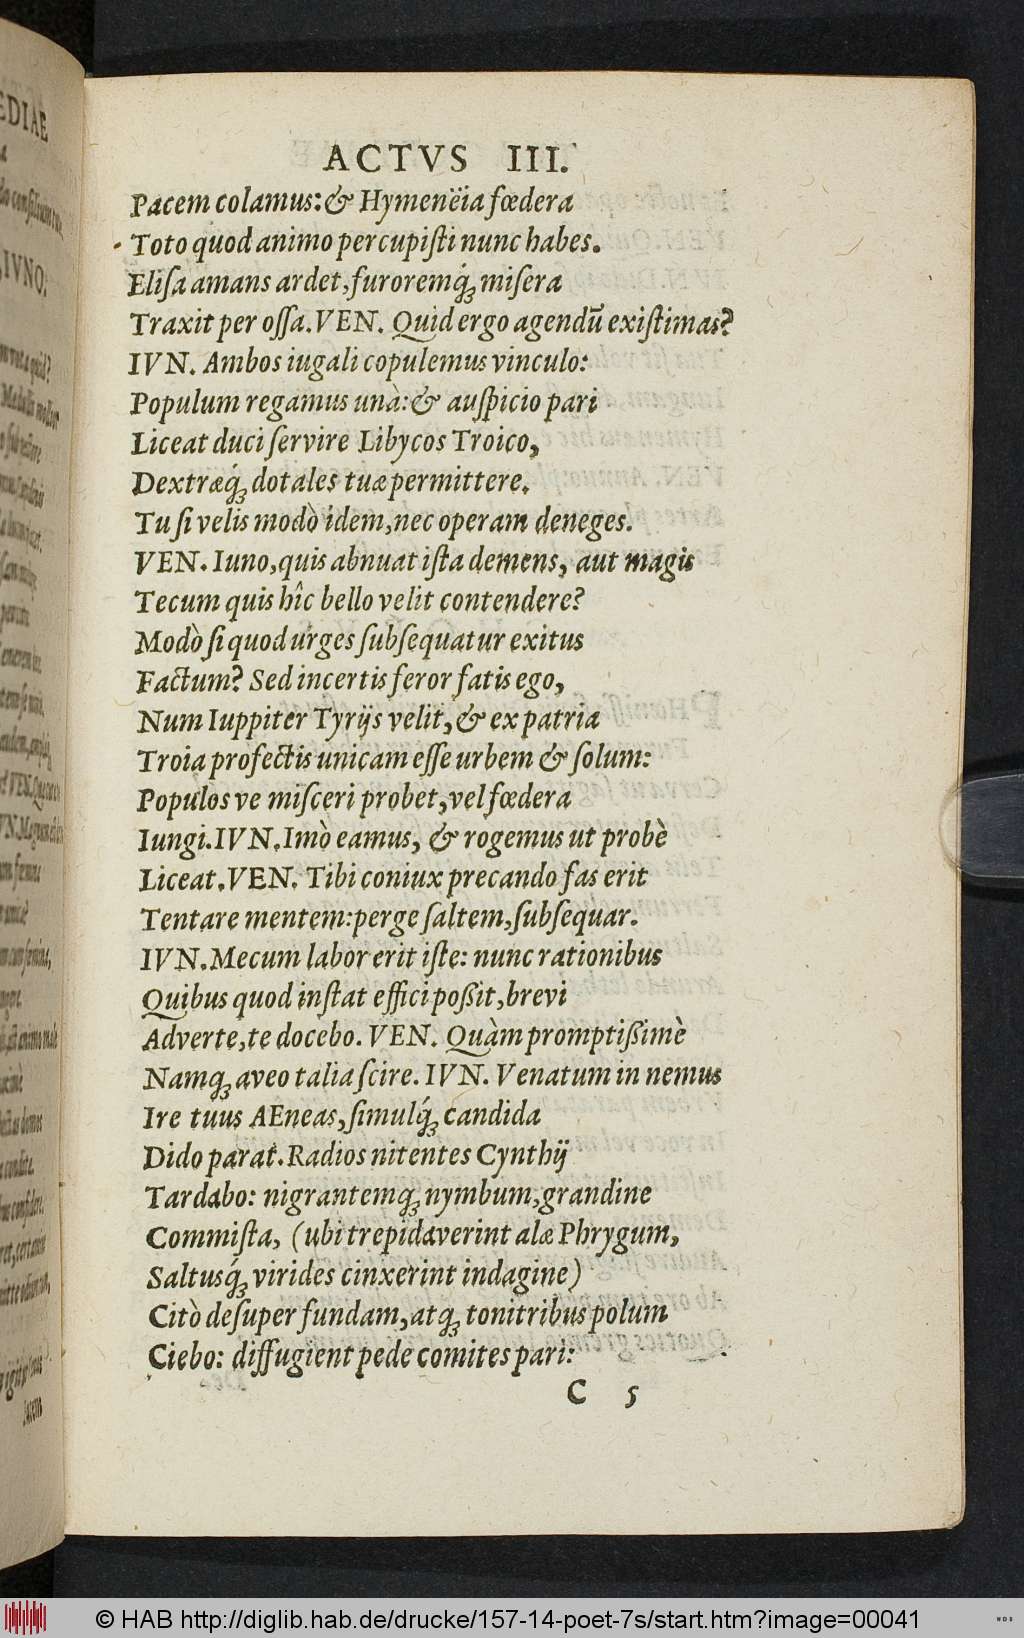 ACTVS III.
Pacem colamus: & Hymenëia fœdera
Toto quod animo percupisti nunc habes.
Elisa amans ardet, furoremq́; misera
Traxit per ossa. VEN. Quid ergo agendū existimas?
IVN. Ambos iugali copulemus vinculo:
Populum regamus unà: & auspicio pari
Liceat duci servire Libycos Troico,
Dextræq́; dotales tuæ permittere.
Tu si velis modò idem, nec operam deneges.
VEN. Iuno, quis abnuat ista demens, aut magis
Tecum quis hîc bello velit contendere?
Modò si quod urges subsequatur exitus
Factum? Sed incertis feror fatis ego,
Num Iuppiter Tyrijs velit, & ex patria
Troia profectis unicam esse urbem & solum:
Populos ve misceri probet, vel fœdera
Iungi. IVN. Imò eamus, & rogemus ut probè
Liceat. VEN. Tibi coniux precando fas erit
Tentare mentem: perge saltem, subsequar.
IVN. Mecum labor erit iste: nunc rationibus
Quibus quod instat effici poßit, brevi
Adverte, te docebo. VEN. Quàm promptißimè
Namq; aveo talia scire. IVN. Venatum in nemus
Ire tuus AEneas, simulq́; candida
Dido parat. Radios nitentes Cynthij
Tardabo: nigrantemq; nymbum, grandine
Commista, (ubi trepidaverint alæ Phrygum,
Saltusq́; virides cinxerint indagine)
Citò desuper fundam, atq; tonitribus polum
Ciebo: diffugient pede comites pari:
C 5
© HAB http://diglib.hab.de/drucke/157-14-poet-7s/start.htm?image=00041